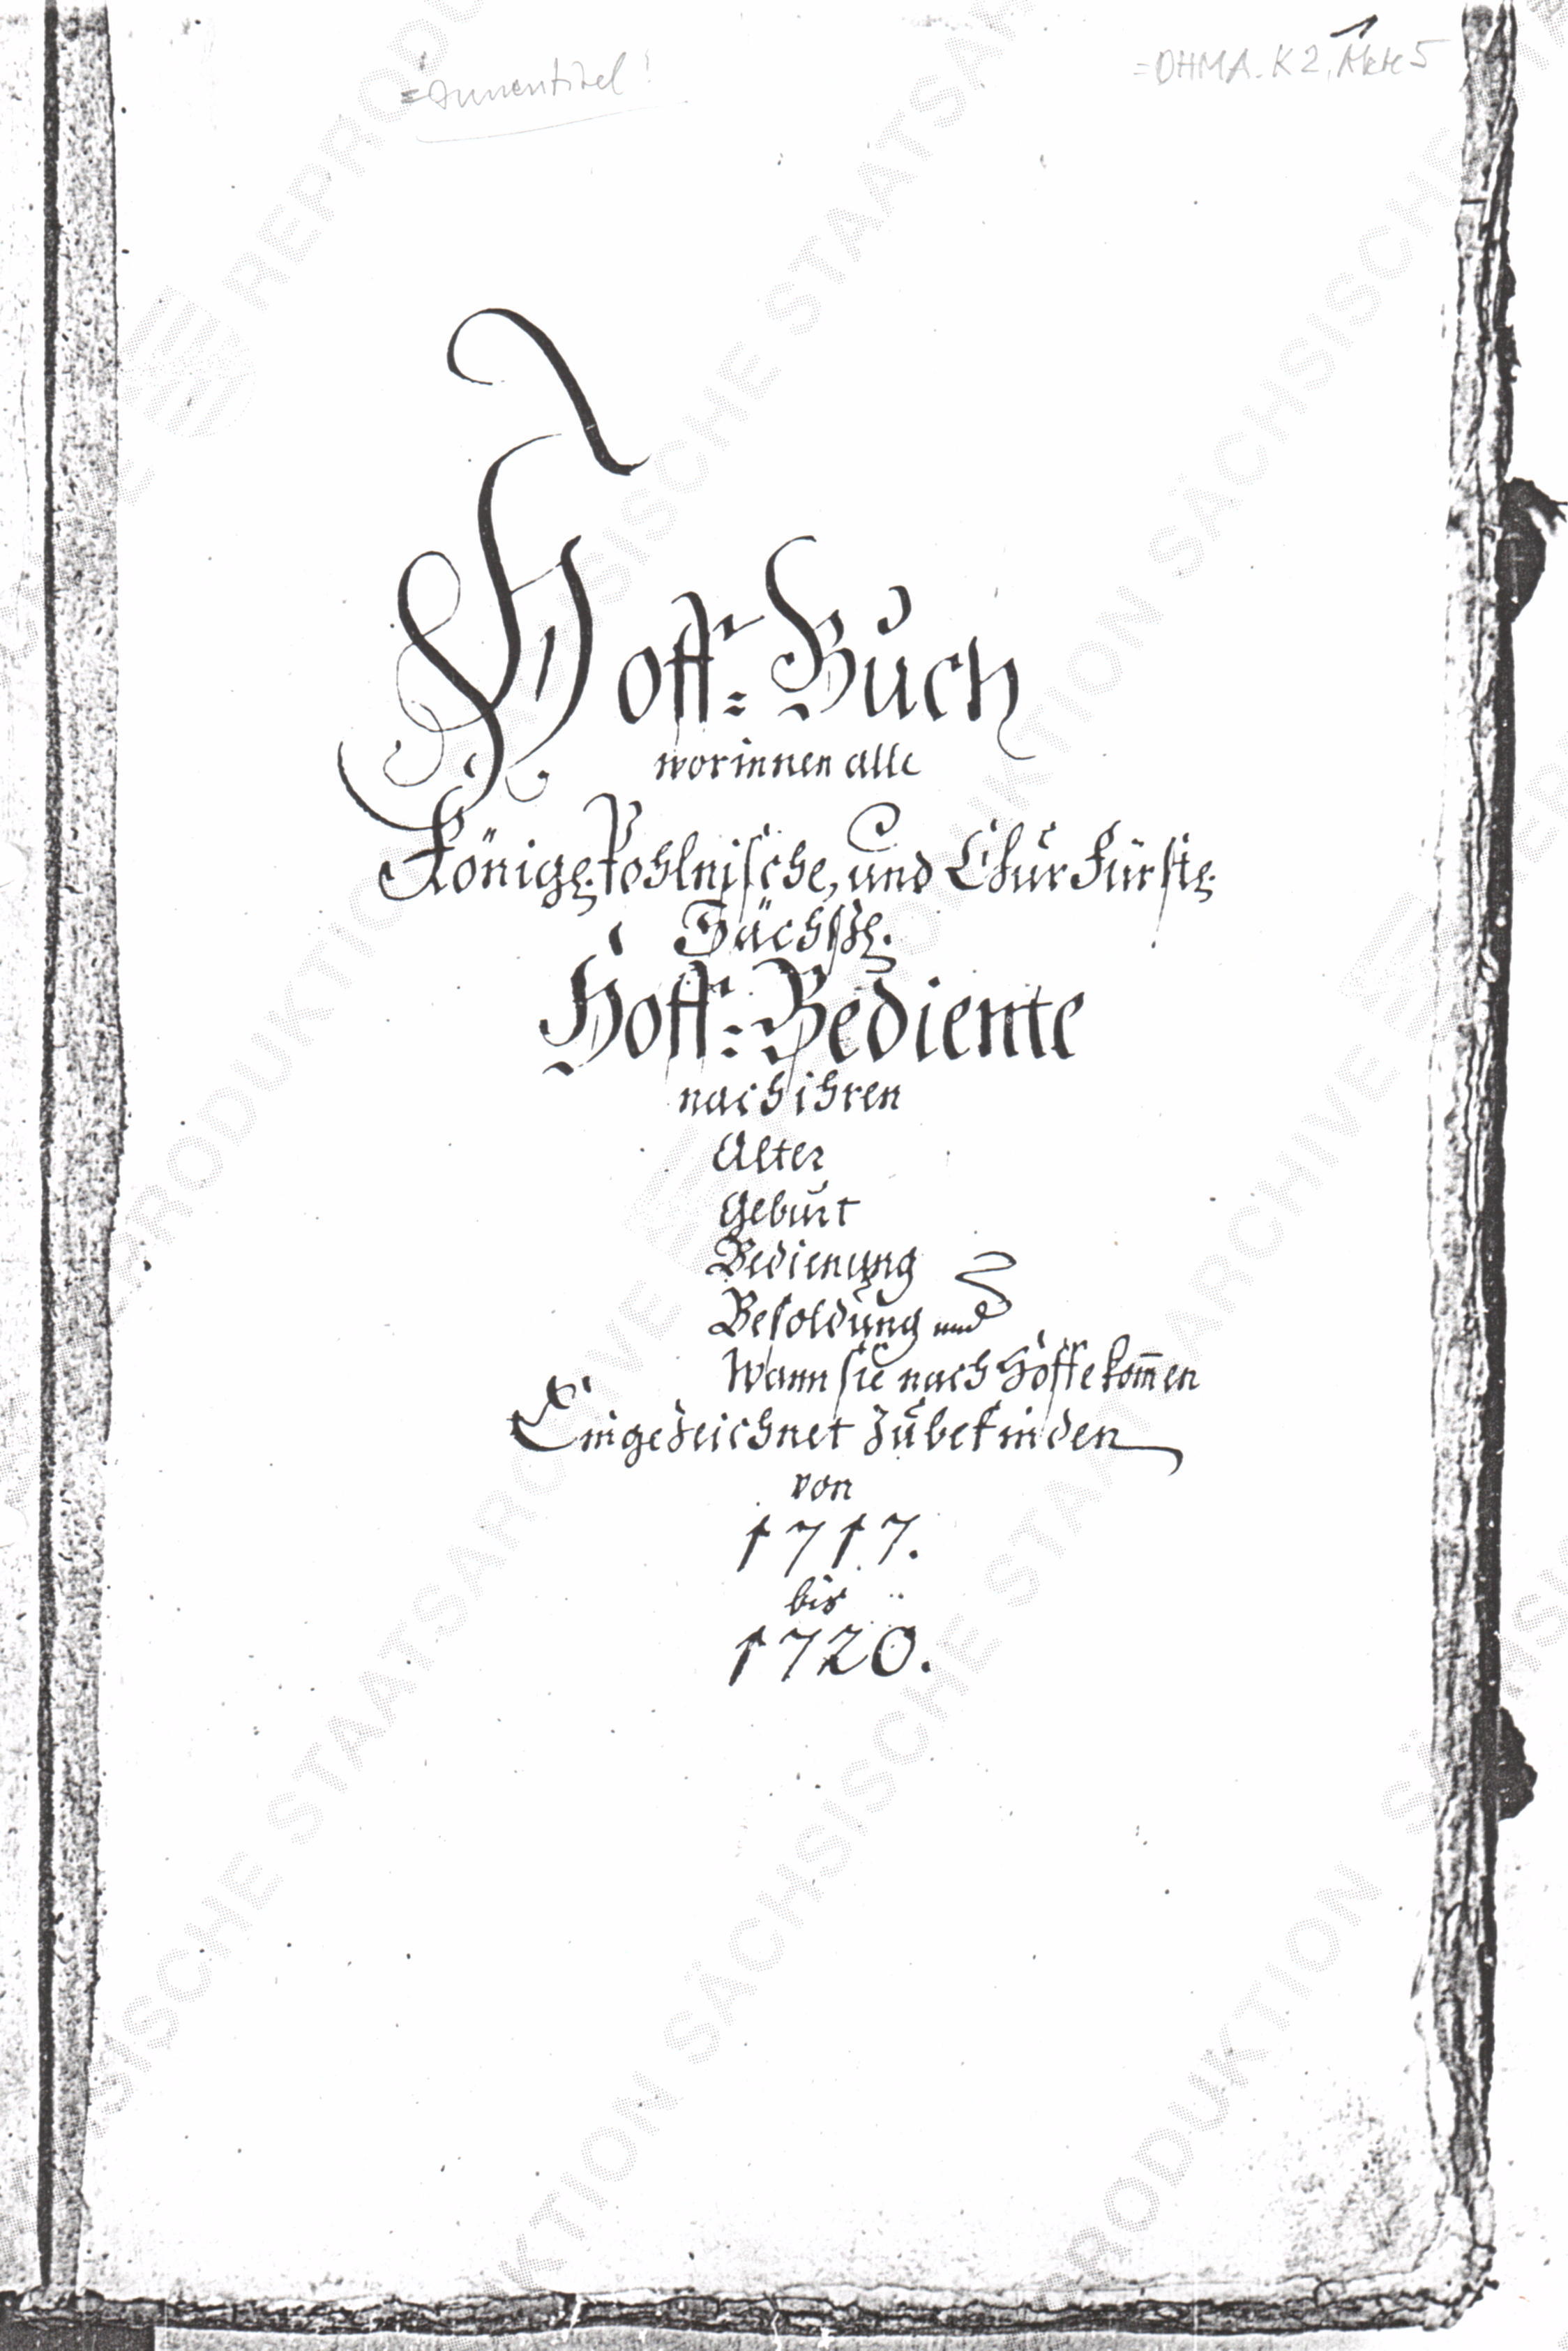 =Innentitel!
=OHMA. K 2, Akte 5
Hoff=Buch
worinnen alle
Königl. Pohlnische, und ChurFürstl.
Sächßl.
Hoff=Bediente
nach ihren
Alter
Geburt
Bedienung
Besoldung und
Wann sie nach Hoffe kom̅en
Eingezeichnet zubefinden
von
1717.
bis
1720.
REPRODUKTION SÄCHSISCHE STAATSARCHIVE